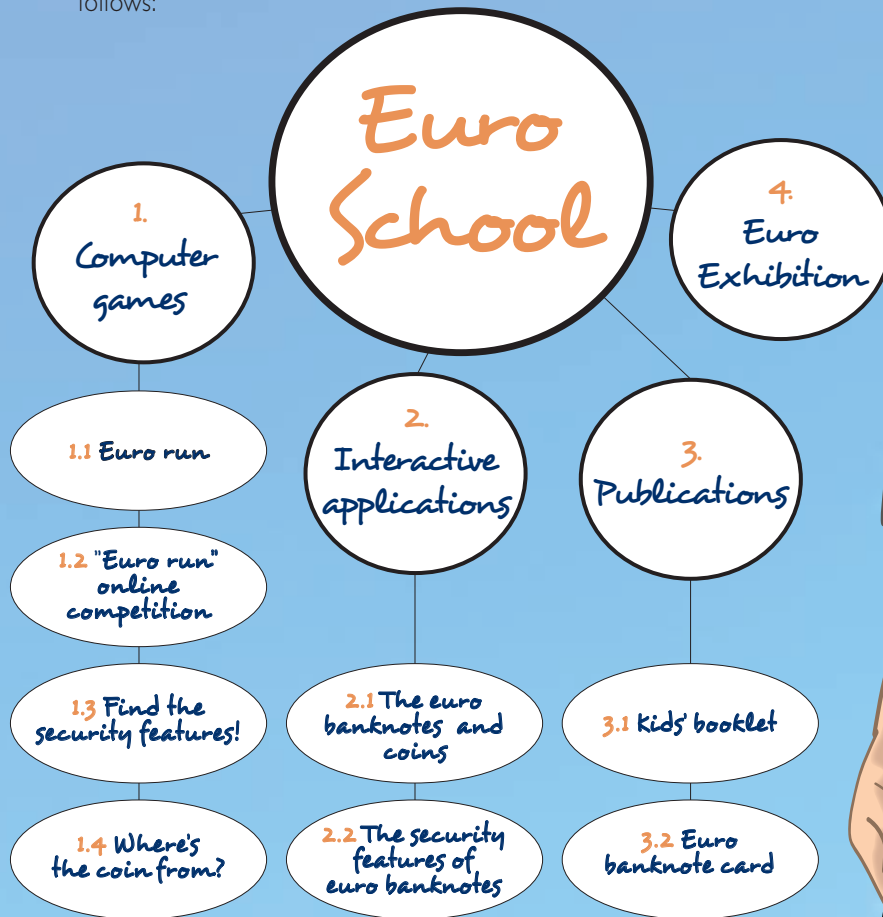 follows:
Euro
School
1.
Computer
games
1.1 Euro run
1.2 "Euro run"
online
competition
1.3 Find the
security features!
1.4 Where's
the coin from?
2.
Interactive
applications
2.1 The euro
banknotes and
coins
2.2 The security
features of
euro banknotes
3.
Publications
3.1 Kids' booklet
3.2 Euro
banknote card
4.
Euro
Exhibition